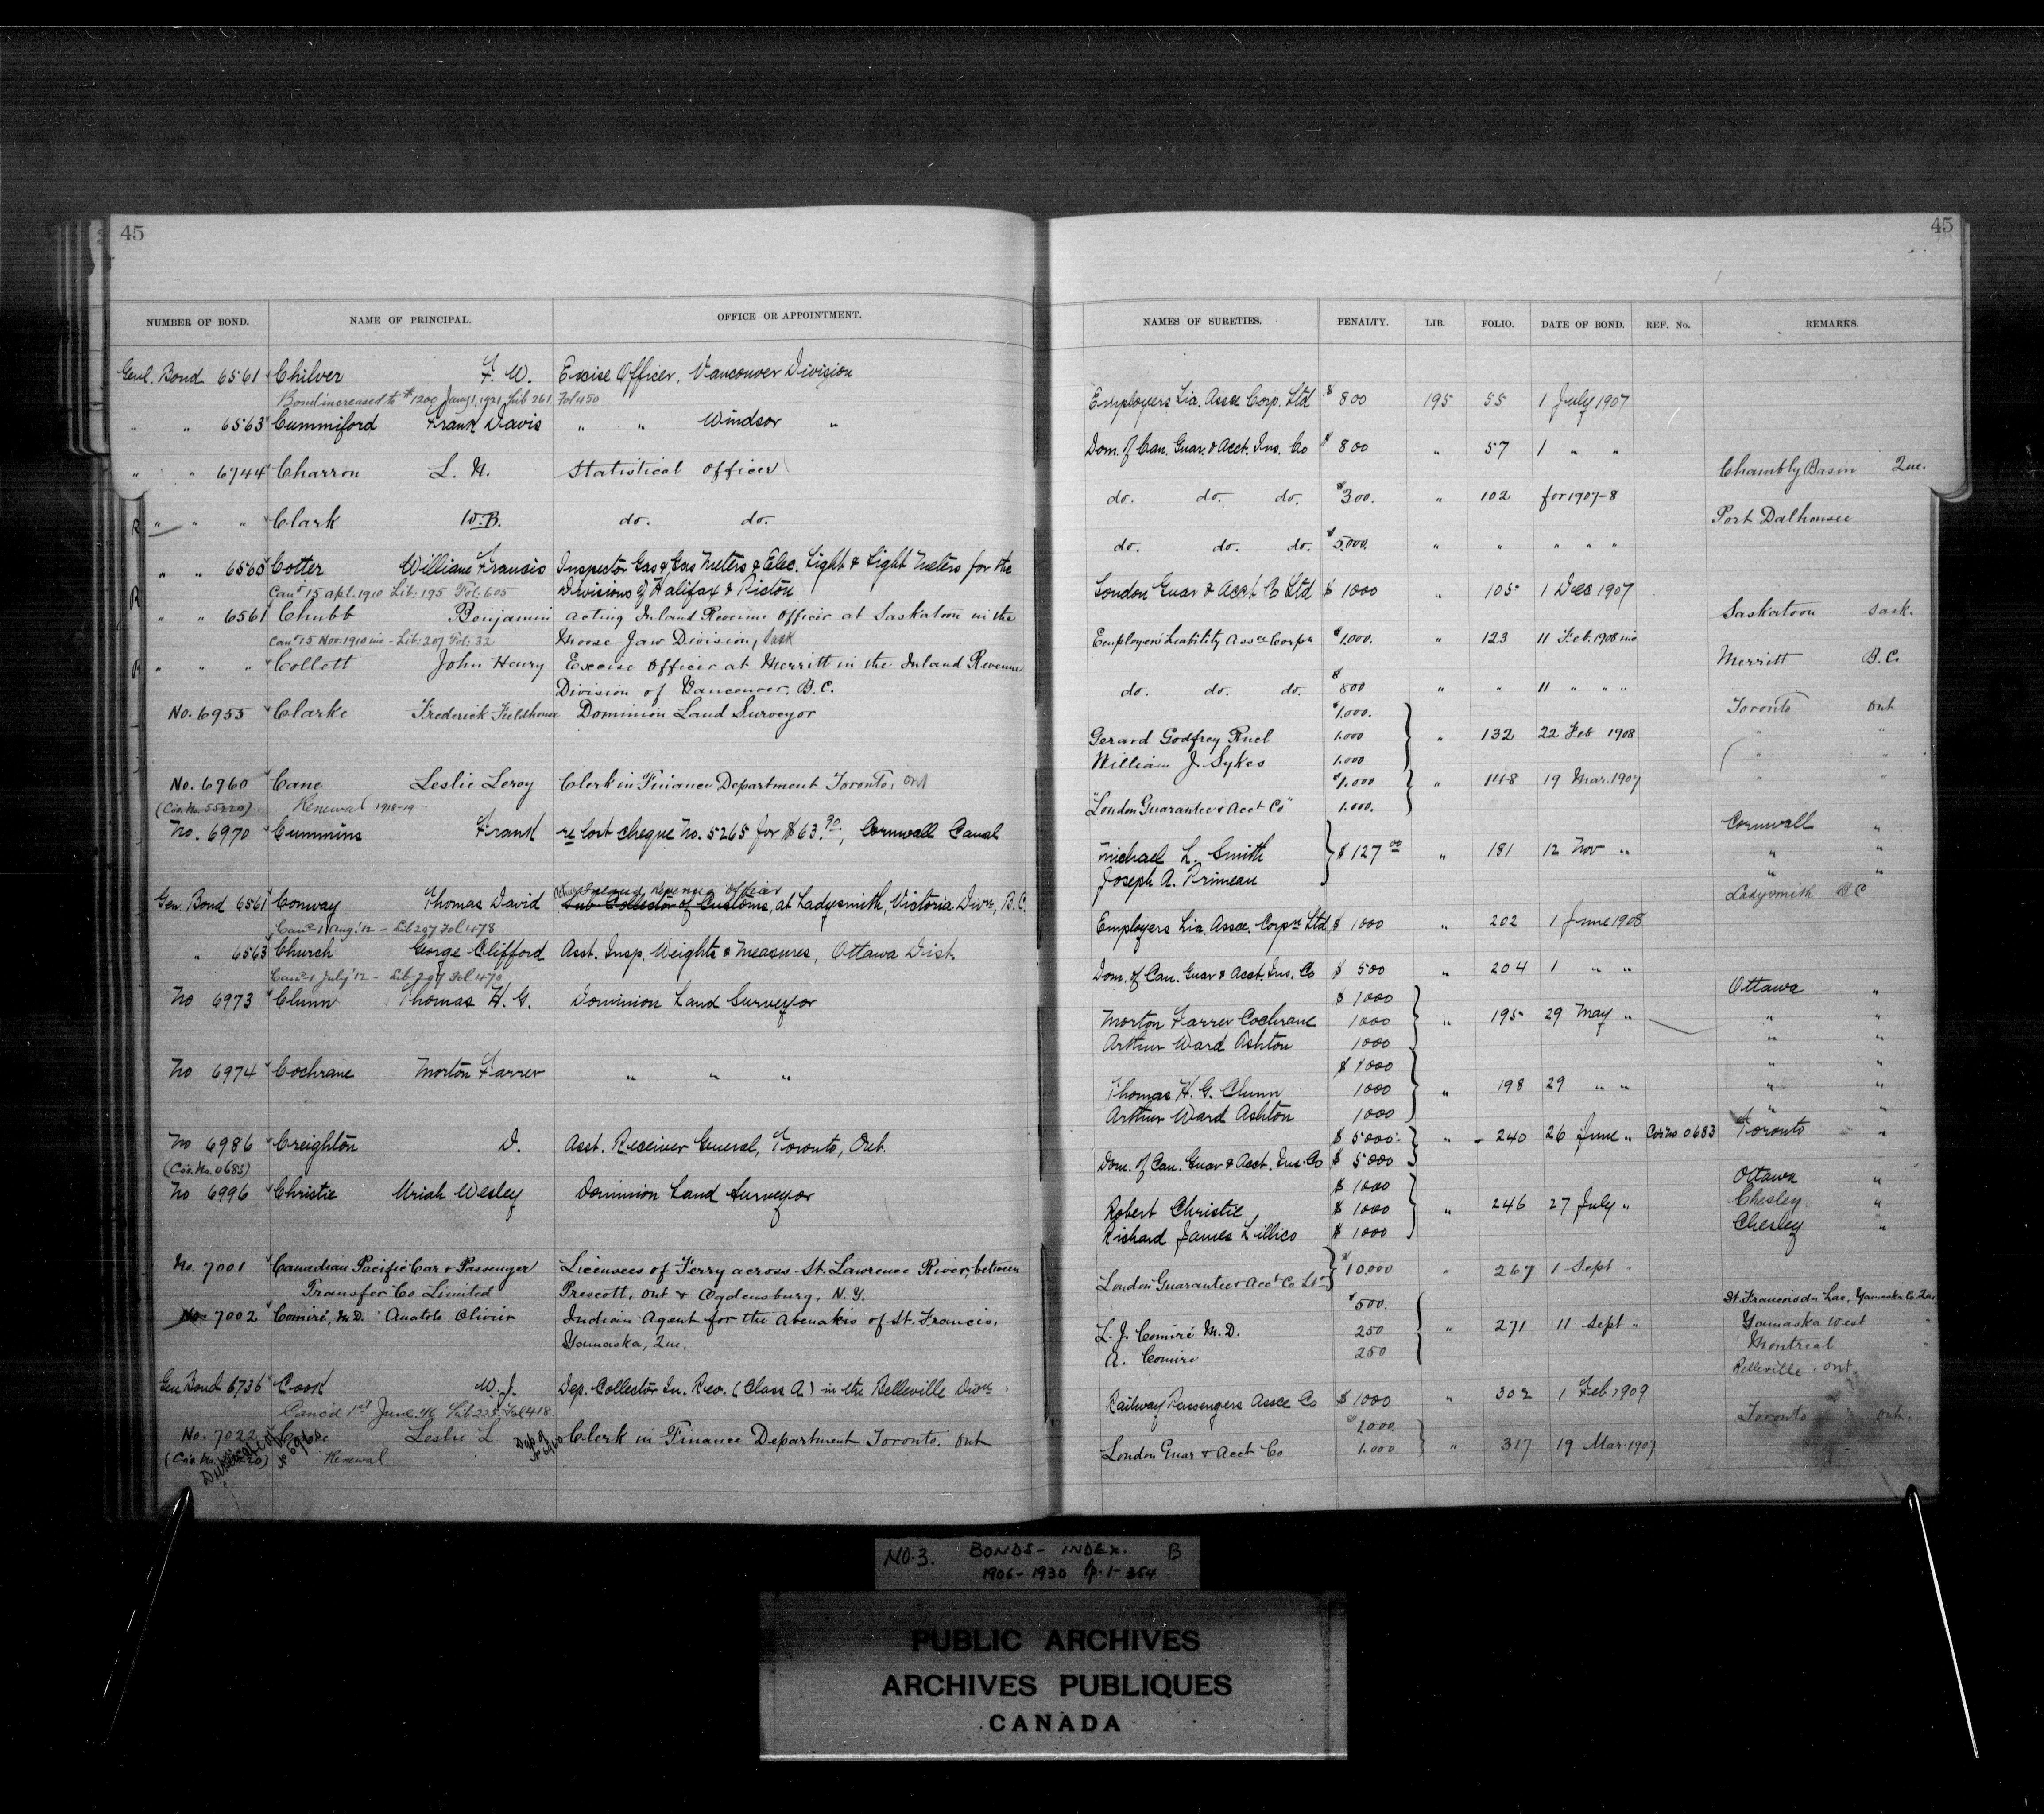 45
NUMBER OF BOND. NAME OF PRINCIPAL. OFFICE OR APPOINTMENT.
Genl. Bond 6561 Chilver F. W. Excise Officer, Vancouver Division
Bond increased to $1200 Jany 1, 1921, Lib 261 Fol 450
" " 6563 Cummiford Frank Davis " " Windsor "
" " 6744 Charron L. N. Statistical Officer
R " " " Clark W. B. do. do.
" " 6565 Cotter William Francis Inspector Gas & Gas Meters & Elec. Light & Light Meters for the
R Canc'd 15 Apl. 1910 Lib: 195 Fol: 605 Divisions of Halifax & Pictou
" " 6561 Chubb Benjamin Acting Inland Revenue Officer at Saskatoon in the
Canc'd 15 Nov. 1910 - Lib: 207 Fol: 32 Moose Jaw Division, Sask
R " " " Collett John Henry Excise Officer at Merritt in the Inland Revenue
Division of Vancouver, B.C.
No. 6955 Clarke Frederick Fieldhouse Dominion Land Surveyor
No. 6960 Cane Leslie Leroy Clerk in Finance Department Toronto, Ont
(Cov. No. 55220) Renewal 1918-19
No. 6970 Cummins Frank re lost cheque No. 5265 for $63.90, Cornwall Canal
Inland Revenue Officer
Gen. Bond 6561 Conway Thomas David Sub Collector of Customs, at Ladysmith, Victoria Divn, B.C.
Canc'd 1 Aug. '12 - Lib 207 Fol 478
" 6563 Church George Clifford Asst. Insp. Weights & Measures, Ottawa Dist.
Canc'd 1 July '12 - Lib 207 Fol 470
No 6973 Clunn Thomas H. G. Dominion Land Surveyor
No 6974 Cochrane Morton Farrer " " "
No 6986 Creighton D. Asst. Receiver General, Toronto, Ont.
(Cov. No. 0683)
No 6996 Christie Uriah Wesley Dominion Land Surveyor
No. 7001 Canadian Pacific Car & Passenger Licensees of Ferry across St. Lawrence River, between
Transfer Co Limited Prescott, Ont & Ogdensburg, N.Y.
No 7002 Comiré, M.D. Anatole Olivier Indian Agent for the Abenakis of St. Francis,
Yamaska, Que.
Gen Bond 6736 Cook W. J. Dep. Collector In. Rev. (Class A) in the Belleville Divn
Canc'd 1st June '16 Lib 225 Fol 418
No. 7022 Cane Leslie L. Dup of No 6960 Clerk in Finance Department Toronto, Ont
Renewal
Duplicate of No 6960
45
NAMES OF SURETIES. PENALTY. LIB. FOLIO. DATE OF BOND. REF. No. REMARKS.
Employers Lia. Assce Corp. Ltd $ 800 195 55 1 July 1907
Dom. of Can. Guar. & Acct. Ins. Co $ 800 " 57 1 " "
Chambly Basin Que.
do. do. do. $300. " 102 for 1907-8
Port Dalhousie
do. do. do. $5,000. " " " " "
London Guar & Acct Co Ltd $ 1000 " 105 1 Dec 1907
Saskatoon Sask.
Employers' Liability Assce Corpn $1,000. " 123 11 Feb. 1908
Merritt B.C.
do. do. do. $800 " " 11 " " "
$1,000. Toronto Ont
Gerard Godfrey Ruel 1,000 " 132 22 Feb 1908 " "
William J. Sykes 1,000 " "
$1,000 " 148 19 Mar. 1907 " "
"London Guarantee & Acct Co" 1,000.
Cornwall "
Michael L. Smith $ 127 00 " 181 12 Nov " " "
Joseph A. Primeau " "
Ladysmith B C
Employers Lia. Assce. Corpn Ltd $ 1000 " 202 1 June 1908
Dom. of Can. Guar & Acct. Ins. Co $ 500 " 204 1 " "
$ 1000 Ottawa "
Morton Farrer Cochrane 1000 " 195 29 May " " "
Arthur Ward Ashton 1000 " "
$ 1000 " "
Thomas H. G. Clunn 1000 " 198 29 " " " "
Arthur Ward Ashton 1000 " "
$ 5000 " 240 26 June " Cov. No 0683 Toronto "
Dom. of Can. Guar & Acct. Ins. Co $ 5000
$ 1000 Ottawa "
Robert Christie $ 1000 " 246 27 July " Chesley "
Richard James Lillico $ 1000 Chesley "
London Guarantee & Acct Co Ltd $10,000 " 267 1 Sept "
$500. St. Francois du Lac, Yamaska Co. Que
L. J. Comiré M.D. 250 " 271 11 Sept " Yamaska West "
A. Comire 250 Montreal "
Belleville Ont
Railway Passengers Assce Co $ 1000 " 302 1 Feb 1909
$1,000. Toronto Ont.
London Guar & Acct Co 1,000 " 317 19 Mar. 1907
NO. 3. BONDS - INDEX. B
1906 - 1930 p. 1 - 354
PUBLIC ARCHIVES
ARCHIVES PUBLIQUES
CANADA